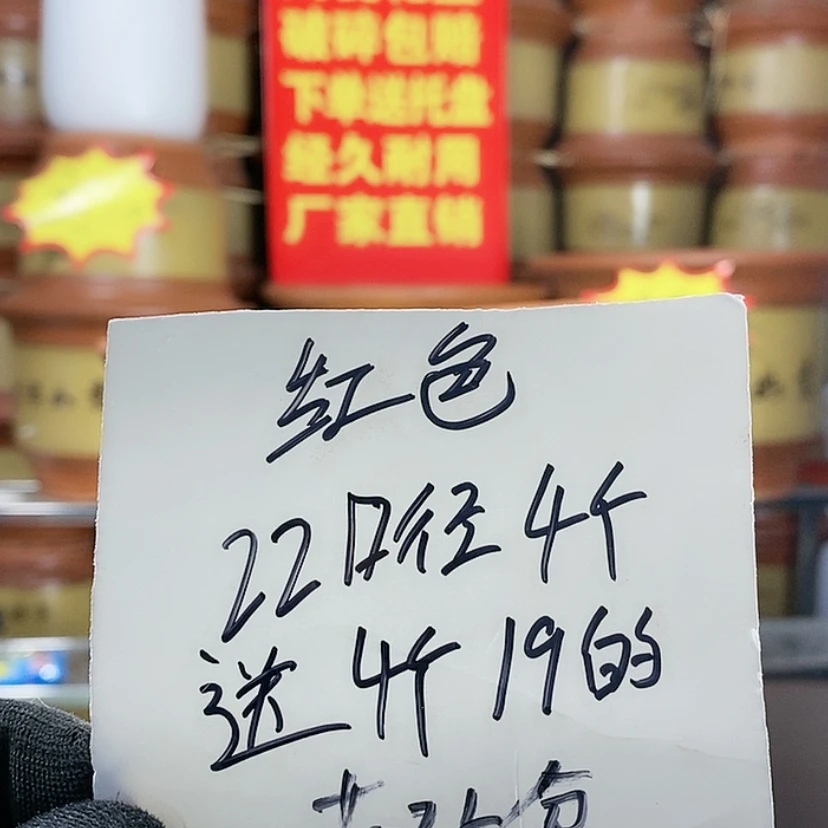 破碎包赔
下单送托盘
经久耐用
厂家直销
红色
22口径4个
送4个19的